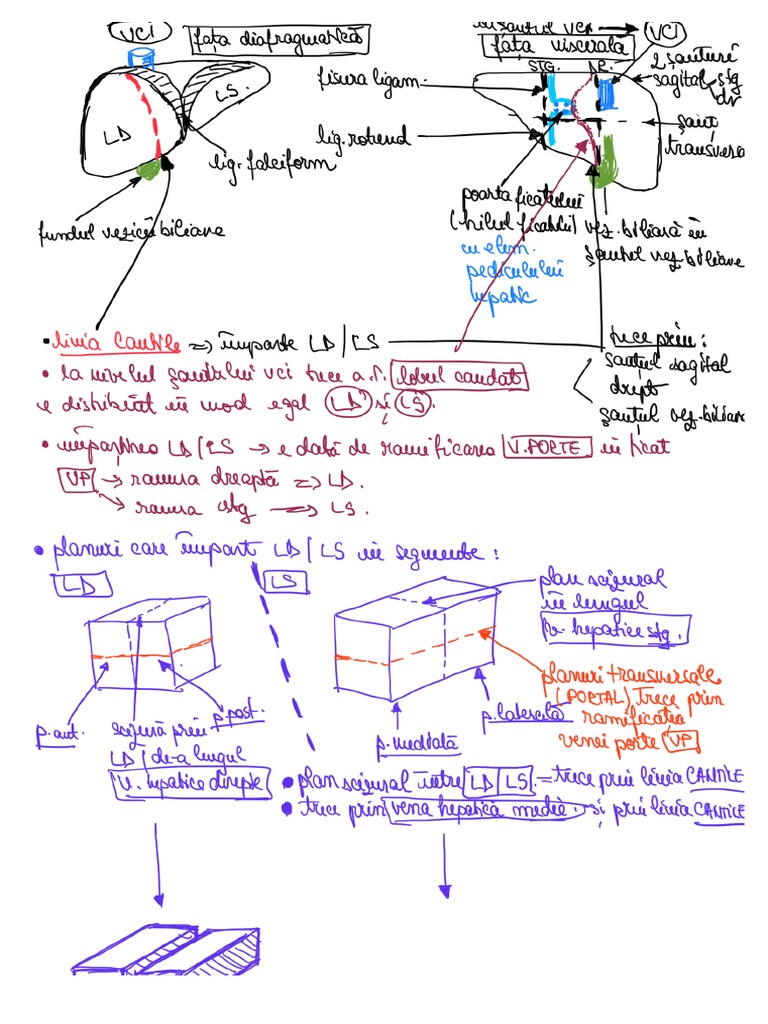 VCI
fața diafragmatică
LD
LS
lig. falciform
fundul vezicii biliare
șanțul VCI
VCI
fața viscerală
STG.
DR.
2 șanțuri
sagital stg
dr
fisura ligam.
lig. rotund
șanț
transversa
poarta ficatului
(hilul ficatului)
cu elem.
pediculului
hepatic
vez. biliară în
șanțul vez. biliare
• linia Cantlie => împarte LD/LS
trece prin:
șanțul sagital
drept
șanțul vez. biliare
• la nivelul șanțului VCI trece a.î. lobul caudat
e distribuit în mod egal LD și LS.
• împărțirea LD/LS → e dată de ramificarea V. PORTE în ficat
VP → ramura dreaptă => LD.
ramura stg => LS.
• planuri care împart LD/LS în segmente:
LD
LS
plan scizural
în lungul
v. hepatice stg.
planuri transversale
(PORTAL) trece prin
ramificația
venei porte VP
p. ant.
scizură prin
LD/de-a lungul
v. hepatice drepte
p. post.
p. medială
p. laterală
• plan scizural între LD LS = trece prin linia CANTLIE
• trece prin vena hepatică medie și prin linia CANTLIE